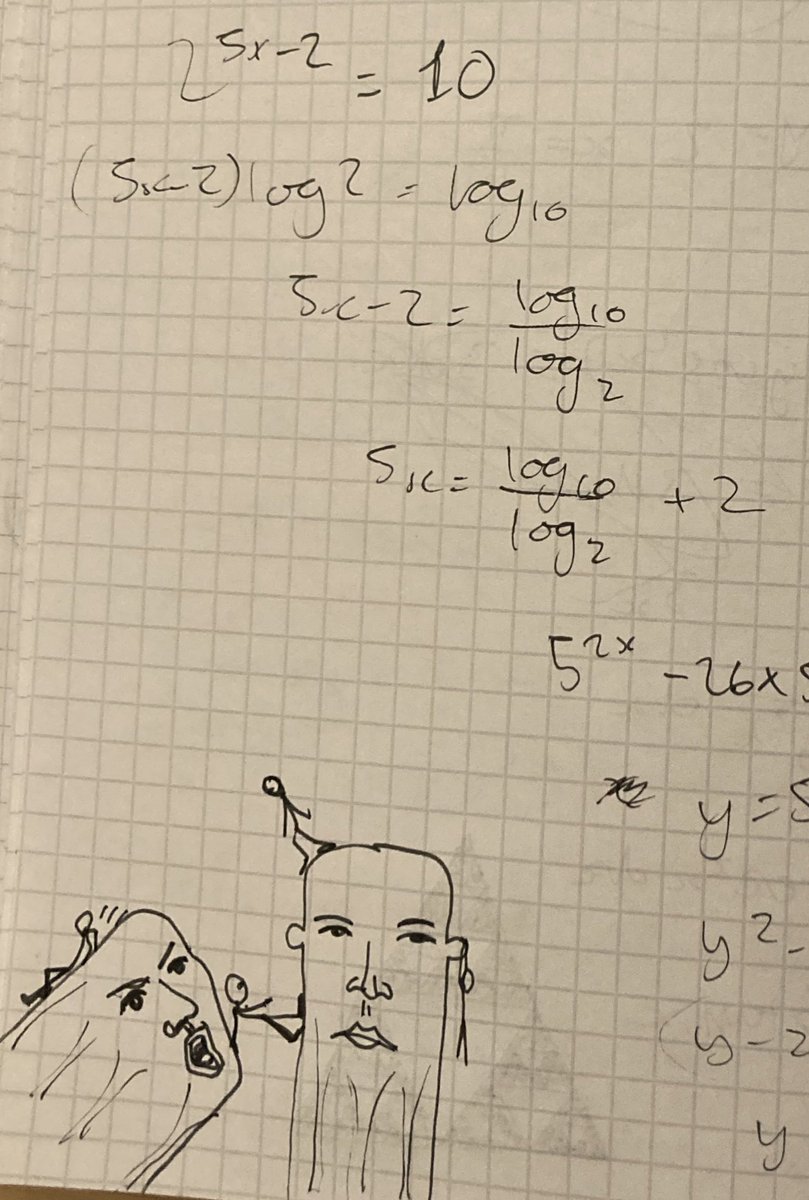 2^{5x-2} = 10
(5x-2)log2 = log₁₀
5x-2 = log₁₀/log₂
5x = log₁₀/log₂ + 2
5^{2x} - 26x5
y = 5
y² -
(y-2
y